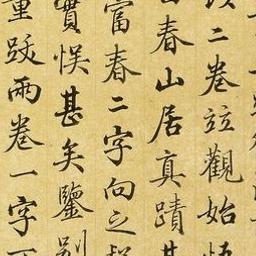 二卷竝觀始悟
春山居真蹟其
富春二字向之
實悞甚矣鑒別
重跋兩卷一字